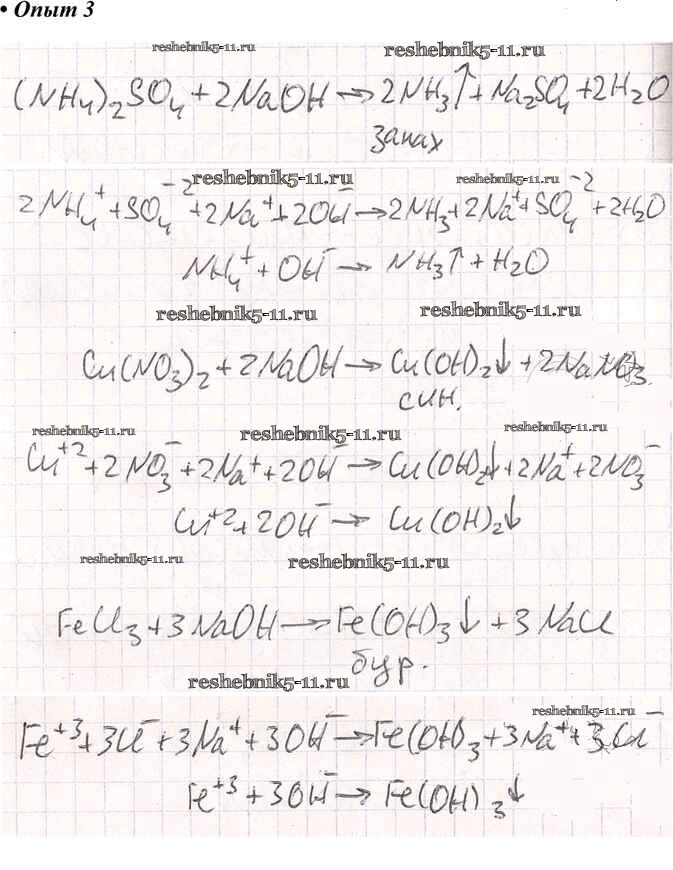 • Опыт 3
reshebnik5-11.ru reshebnik5-11.ru
(NH₄)₂SO₄ + 2NaOH → 2NH₃↑ + Na₂SO₄ + 2H₂O
запах
reshebnik5-11.ru reshebnik5-11.ru
2NH₄⁺ + SO₄⁻² + 2Na⁺ + 2OH⁻ → 2NH₃ + 2Na⁺ + SO₄⁻² + 2H₂O
NH₄⁺ + OH⁻ → NH₃↑ + H₂O
reshebnik5-11.ru reshebnik5-11.ru
Cu(NO₃)₂ + 2NaOH → Cu(OH)₂↓ + 2NaNO₃
син.
reshebnik5-11.ru reshebnik5-11.ru reshebnik5-11.ru
Cu⁺² + 2NO₃⁻ + 2Na⁺ + 2OH⁻ → Cu(OH)₂↓ + 2Na⁺ + 2NO₃⁻
Cu⁺² + 2OH⁻ → Cu(OH)₂↓
reshebnik5-11.ru reshebnik5-11.ru
FeCl₃ + 3NaOH → Fe(OH)₃↓ + 3NaCl
бур.
reshebnik5-11.ru reshebnik5-11.ru
Fe⁺³ + 3Cl⁻ + 3Na⁺ + 3OH⁻ → Fe(OH)₃ + 3Na⁺ + 3Cl⁻
Fe⁺³ + 3OH⁻ → Fe(OH)₃↓